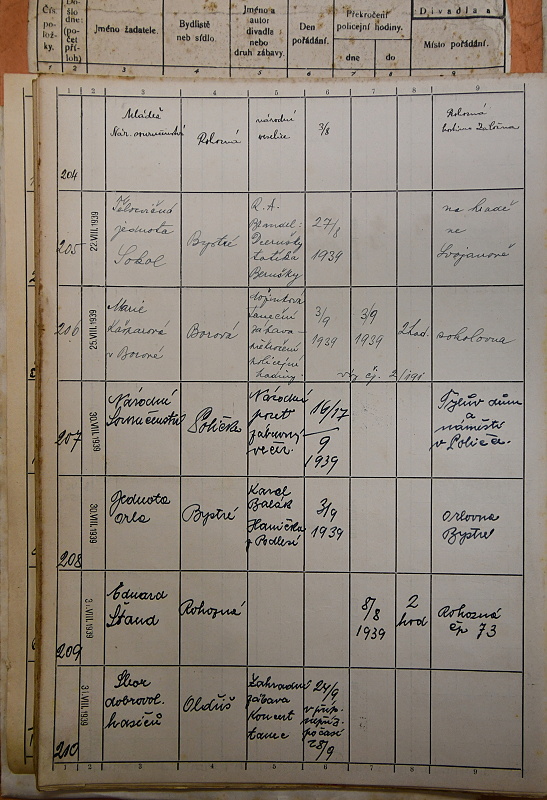 Čís. polož-ky.
Do-šlo dne: (počet příloh)
Jméno žadatele.
Bydliště neb sídlo.
Jméno a autor divadla nebo druh zábavy.
Den pořádání.
Překročení policejní hodiny.
dne
do
Divadla a
Místo pořádání.
1 2 3 4 5 6 7 8 9
1 2 3 4 5 6 7 8 9
204
Mládež
Nár. souručenství
Rohozná
národní
veselice
3/8
Rohozná
205
22.VIII.1939
Tělocvičná
jednota
Sokol
Bystré
R. A.
Dcerušky
tatíka
Berušky
27/8
1939
na hradě
ve
Svojanově
206
25.VIII.1939
Marie
Kašparová
v Borové
Borová
taneční
zábava -
překročení
policejní
hodiny.
3/9
1939
3/9
1939
2 hod.
sokolovna
viz čj. 2/191
207
30.VIII.1939
Národní
Souručenství
Polička
Národní
pouť
zábavný
večír.
16/17
9
1939
Tylův dům
a
náměstí
v Poličce.
208
30.VIII.1939
Jednota
Orla
Bystré
Karel
Balák
Hanička
z Podlesí
3/9
1939
Orlovna
Bystré
209
31.VIII.1939
Eduard
Štaud
Rohozná
8/8
1939
2
hod
Rohozná
čp 73
210
31.VIII.1939
Sbor
dobrovol.
hasičů
Oldřiš
Zahradní
zábava
Koncert
tanec
24/9
v příp.
nepříz.
počasí
28/9
1 2 3 4 5 6 7 8 9